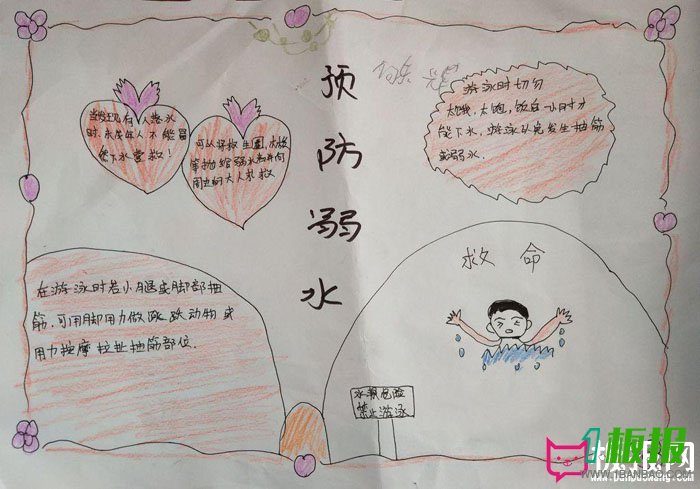 预防溺水
当发现有人落水
时,未成年人不能冒
然下水营救!
可以将救生圈,木板
等抛给溺水者并向
周边的大人求救
游泳时切勿
太饿、太饱,饭后一小时才
能下水,游泳以免发生抽筋
或溺水.
在游泳时若小腿或脚部抽
筋,可用脚用力做跳跃动物或
用力按摩拉扯抽筋部位.
救命
水深危险
禁止游泳
1板报
WWW.1BANBAO.COM